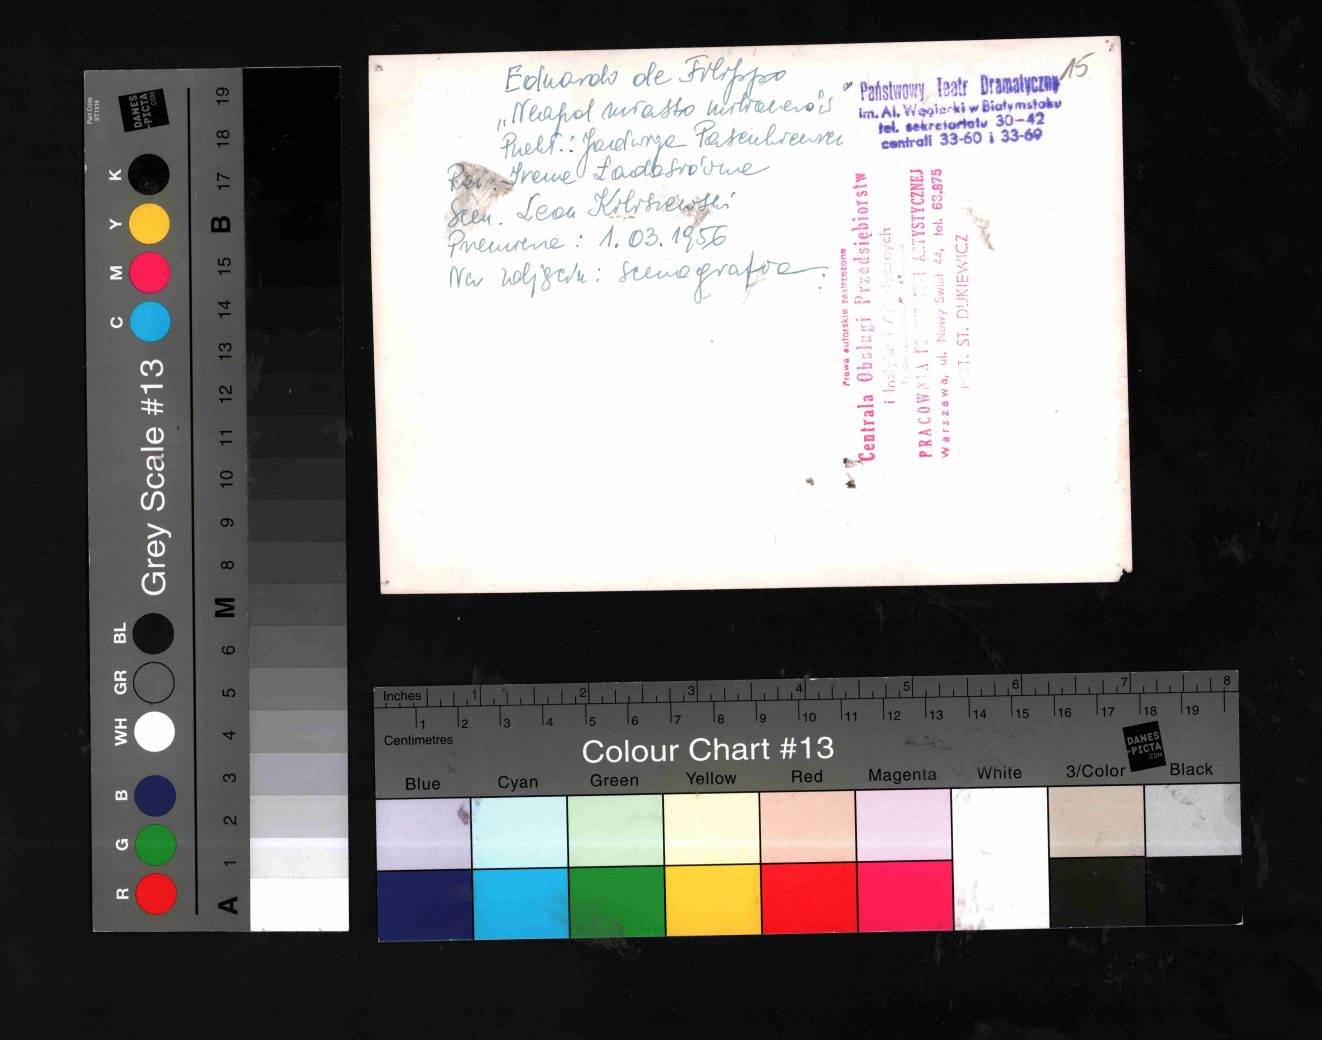 Eduardo de Filippo
„Neapol miasto milionerów"
Przekł.: Jadwiga Pasenkiewicz
Reż. Irena Ładosiówna
Scen. Leon Kiliszewski
Premiera: 1.03.1956
Na zdjęciu: scenografia.
15
Państwowy Teatr Dramatyczny
im. Al. Węgierki w Białymstoku
tel. sekretariatu 30-42
centrali 33-60 i 33-69
Prawa autorskie zastrzeżone
Centrala Obsługi Przedsiębiorstw
i Instytucji Artystycznych
PRACOWNIA ARTYSTYCZNEJ
Warszawa, ul. Nowy Świat 44, tel. 63.875
FOT. ST. DUKIEWICZ
Part Code
ST1316
DANES
-PICTA
.COM
Grey Scale #13
R G B WH GR BL C M Y K
A 1 2 3 4 5 6 M 8 9 10 11 12 13 14 15 B 17 18 19
Inches 1 2 3 4 5 6 7 8
1 2 3 4 5 6 7 8 9 10 11 12 13 14 15 16 17 18 19
Centimetres
Colour Chart #13
DANES
-PICTA
.COM
Blue Cyan Green Yellow Red Magenta White 3/Color Black